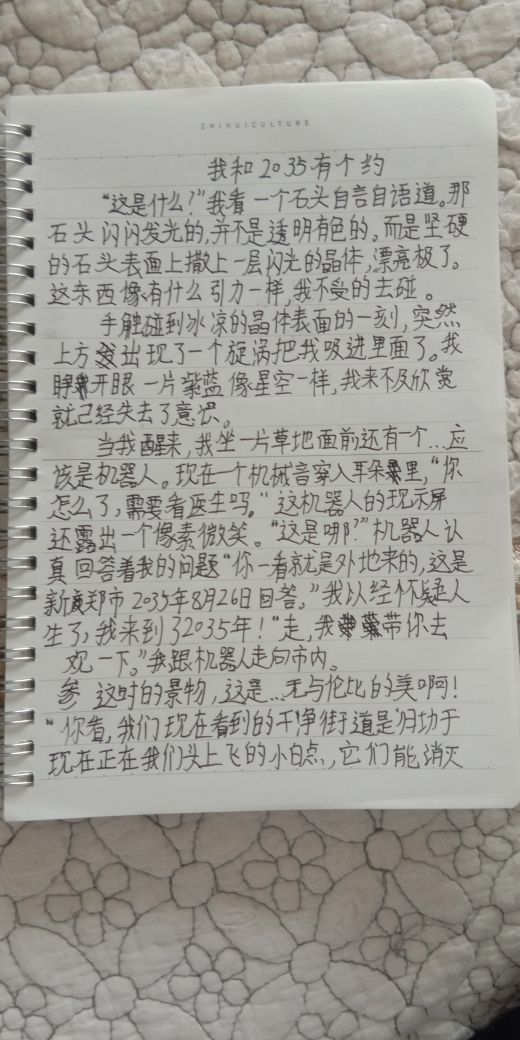 ZHIHUICULTURE
我和2035有个约
“这是什么?”我看一个石头自言自语道。那
石头闪闪发光的,并不是透明有色的。而是坚硬
的石头表面上撒上一层闪光的晶体,漂亮极了。
这东西像有什么引力一样,我不受的去碰。
手触碰到冰凉的晶体表面的一刻,突然
上方出现了一个旋涡把我吸进里面了。我
睁开眼一片紫蓝像星空一样,我来不及欣赏
就已经失去了意识。
当我醒来,我坐一片草地面前还有一个…应
该是机器人。现在一个机械音穿入耳朵里,“你
怎么了,需要看医生吗。”这机器人的现示屏
还露出一个像素微笑。“这是哪?”机器人认
真回答着我的问题“你一看就是外地来的,这是
新郑市2035年8月26日回答。”我以经怀疑人
生了,我来到了2035年!“走,我带你去
观一下。”我跟机器人走向市内。
参 这时的景物,这是…无与伦比的美啊!
“你看,我们现在看到的干净街道是归功于
现在正在我们头上飞的小白点,它们能消灭